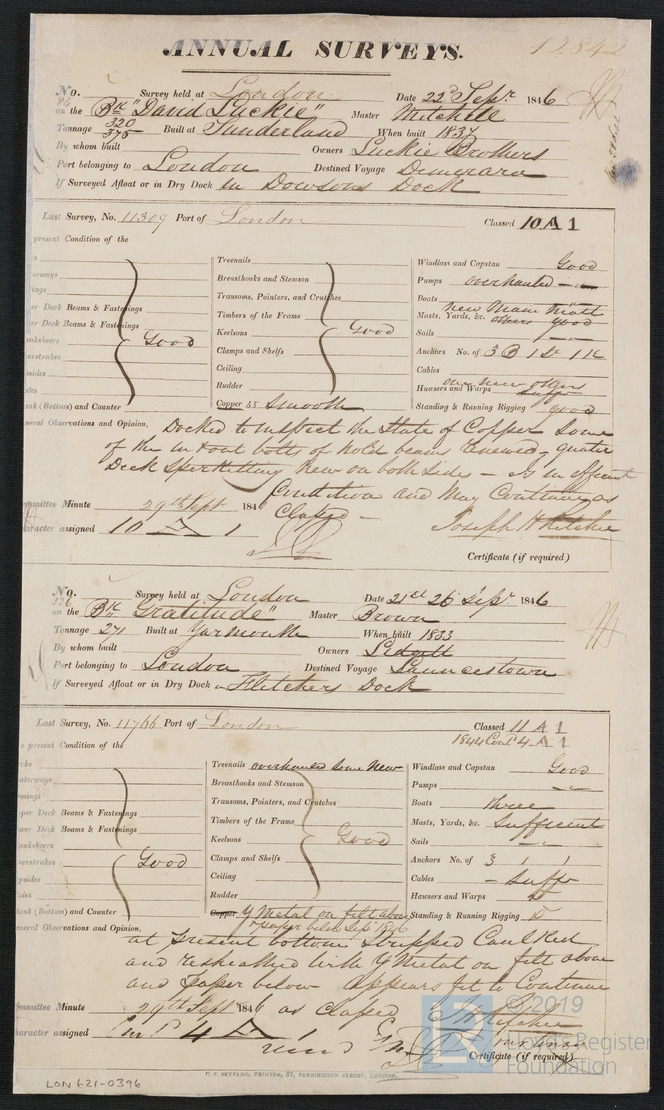 ANNUAL SURVEYS.
12842
No. Survey held at London Date 22d Sepr. 1846
on the Bk "David Luckie" Master Mitchell
Tonnage 320 375 Built at Sunderland When built 1837
By whom built Owners Luckie Brothers
Port belonging to London Destined Voyage Demerara
If Surveyed Afloat or in Dry Dock In Dowsons Dock
Last Survey, No. 11309 Port of London Classed 10 A 1
present Condition of the
Treenails
Breasthooks and Stemson
Transoms, Pointers, and Crutches
Timbers of the Frame
Keelsons Good
Clamps and Shelfs
Ceiling
Rudder
Copper 45 Smooth
er Deck Beams & Fastenings
er Deck Beams & Fastenings
Good
ank (Bottom) and Counter
Windlass and Capstan Good
Pumps overhauled
Boats
Masts, Yards, &c. New Main Mast others good
Sails
Anchors No. of 3 B 1 St 1 Ke
Cables
Hawsers and Warps one new others sufft
Standing & Running Rigging good
neral Observations and Opinion, Docked to inspect the State of Copper Some
of the in & out bolts of hold beams renewed, quarter
Deck Sperketting New on both Sides — Is in efficient
Condition and May Continue as
Classed —
mmittee Minute 29th Sept 1846
aracter assigned 10 A 1
Joseph H Ritchie
Certificate (if required)
No. Survey held at London Date 21st 26 Sepr. 1846
on the Bk "Gratitude" Master Brown
Tonnage 271 Built at Yarmouth When built 1833
By whom built Owners
Port belonging to London Destined Voyage Launcestown
If Surveyed Afloat or in Dry Dock in Fletchers Dock
Last Survey, No. 11766 Port of London Classed 11 A 1
1844 Cont 4 A 1
e present Condition of the
Treenails overhauled Some New
Breasthooks and Stemson
Transoms, Pointers, and Crutches
Timbers of the Frame
Keelsons Good
Clamps and Shelfs
Ceiling
Rudder
Copper Y Metal on felt above
& paper below Sepr 1846
per Deck Beams & Fastenings
wer Deck Beams & Fastenings
Good
lank (Bottom) and Counter
Windlass and Capstan Good
Pumps
Boats three
Masts, Yards, &c. Sufficient
Sails
Anchors No. of 3 1 1
Cables Suffr
Hawsers and Warps
Standing & Running Rigging
neral Observations and Opinion,
at present bottom Stripped Caulked
and resheathed with Y Metal on felt above
and paper below appears fit to Continue
as Classed
mmittee Minute 29th Sept 1846
aracter assigned Cont 4 A 1
Certificate (if required)
C. F. SEYFANG, PRINTER, 57, FARRINGDON STREET, LONDON.
LON 621-0396
© 2019
Lloyd's Register
Foundation